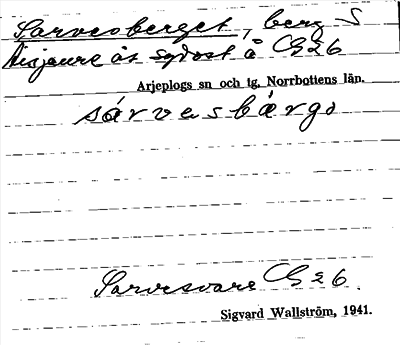 Sarvesberget, berg S
Aisjaure åt sydost å Cg 26
Arjeplogs sn och tg. Norrbottens län.
sárvesbárgo
Sarvesvare Cg 26.
Sigvard Wallström, 1941.